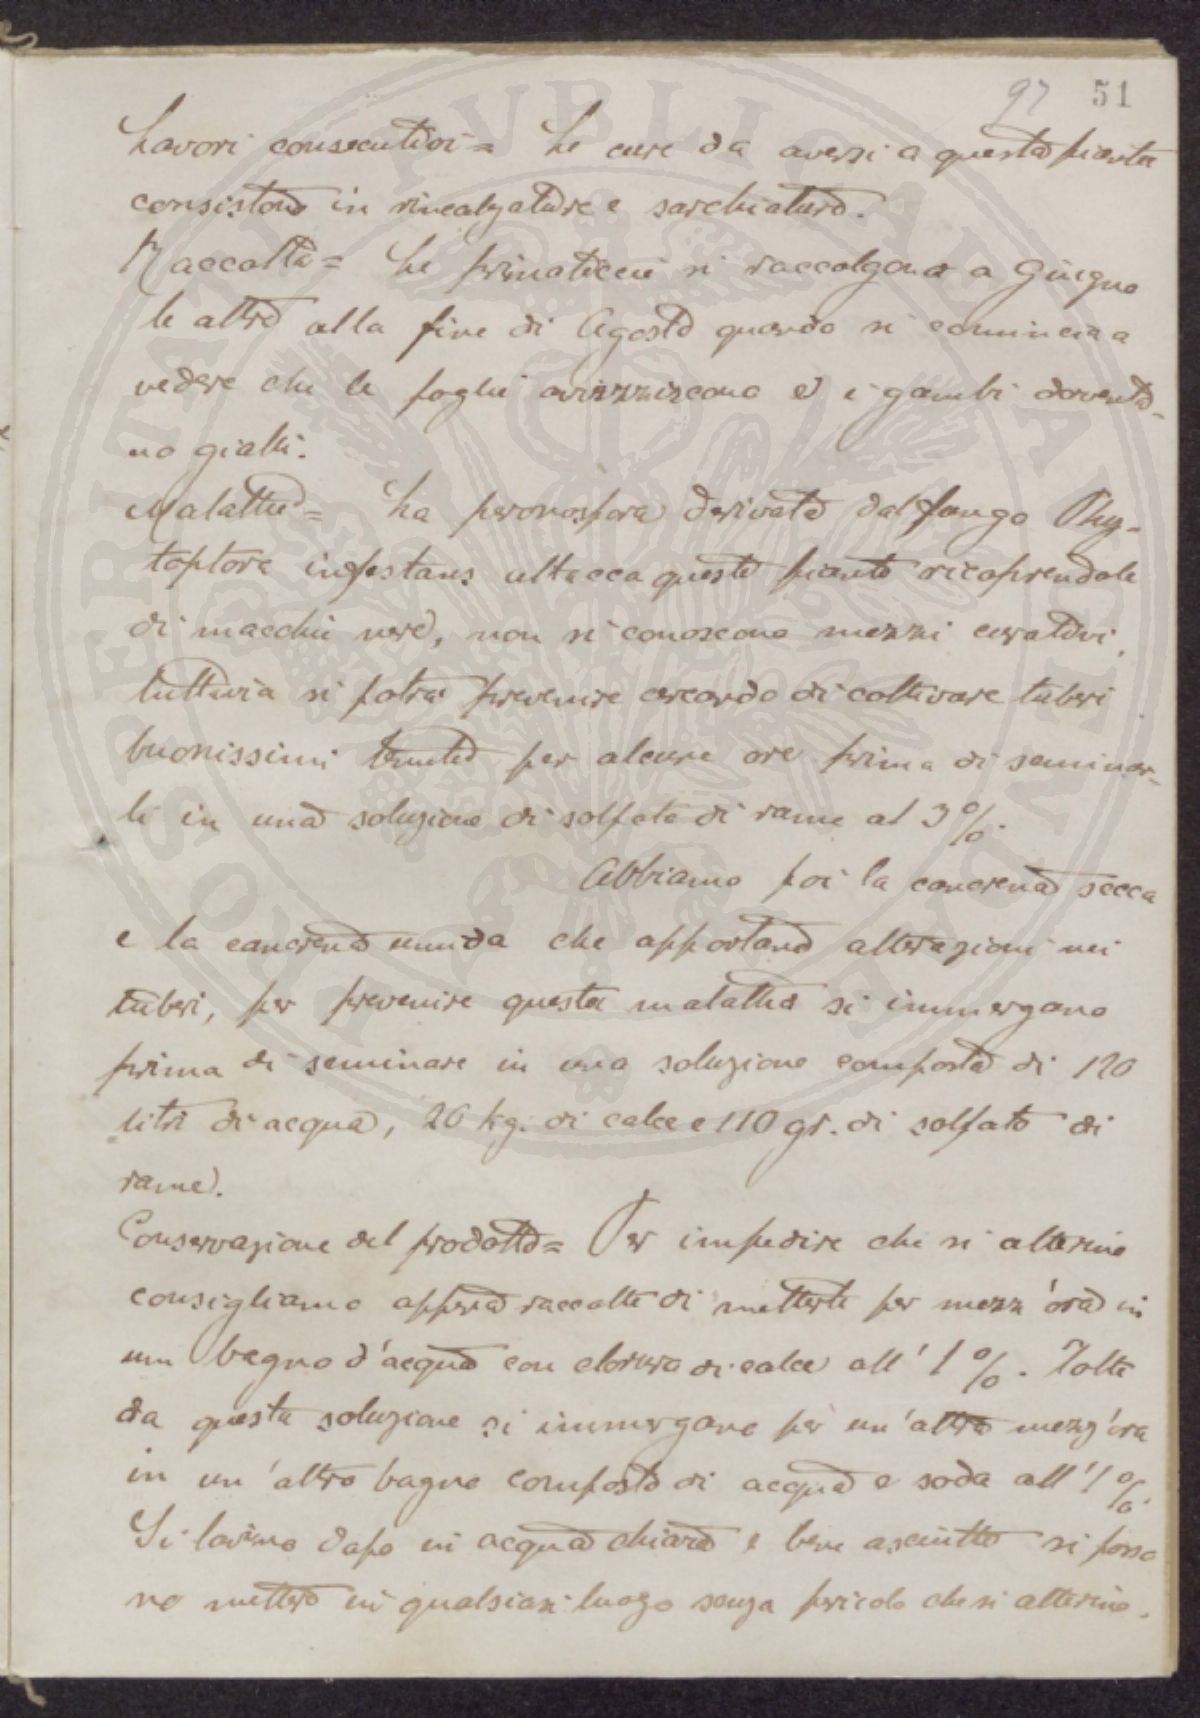 97 51
Lavori consecutivi = Le cure da aversi a questa pianta
consistono in rincalzature e sarchiature.
Raccolta = Le primaticcie si raccolgono a Giugno
le altre alla fine di Agosto quando si comincia a
vedere che le foglie avizziscono e i gambi doventa-
no gialli.
Malattie = La peronospora derivata dal fungo Phy-
toptora infestans attacca queste piante ricoprendole
di macchie nere, non si conoscono mezzi curativi,
tuttavia si potrà prevenire cercando di coltivare tuberi
buonissimi tenuti per alcune ore prima di seminar-
li in una soluzione di solfato di rame al 3%.
Abbiamo poi la cancrena secca
e la cancrena umida che apportano alterazioni nei
tuberi, per prevenire questa malattia si immergano
prima di seminare in una soluzione composta di 120
litri di acqua, 26 kg. di calce e 110 gr. di solfato di
rame.
Conservazione del prodotto = Per impedire che si alterino
consigliamo appena raccolte di metterle per mezz'ora in
un bagno d'acqua con cloruro di calce all'1%. Tolte
da questa soluzione si immergano per un'altra mezz'ora
in un'altro bagno composto di acqua e soda all'1%.
Si lavano dopo in acqua chiara e bene asciutte si posso
no mettere in qualsiasi luogo senza pericolo che si alterino.
PROSPERITATI PVBLICAE AVGENDAE